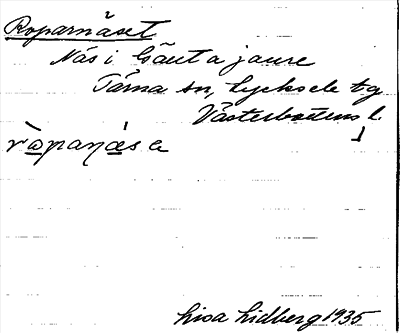 Roparnäset
Näs i Gäutajaure
Tärna sn, Lycksele tg
Västerbottens l.
Lisa Lidberg 1935